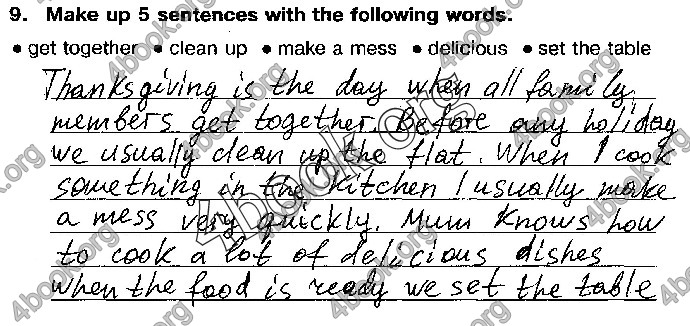 9. Make up 5 sentences with the following words.
• get together • clean up • make a mess • delicious • set the table
Thanksgiving is the day when all family
members get together. Before any holiday
we usually clean up the flat. When I cook
something in the kitchen I usually make
a mess very quickly. Mum knows how
to cook a lot of delicious dishes
when the food is ready we set the table
4book.org